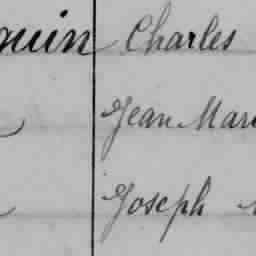 quin Charles
Jean Mari
Joseph